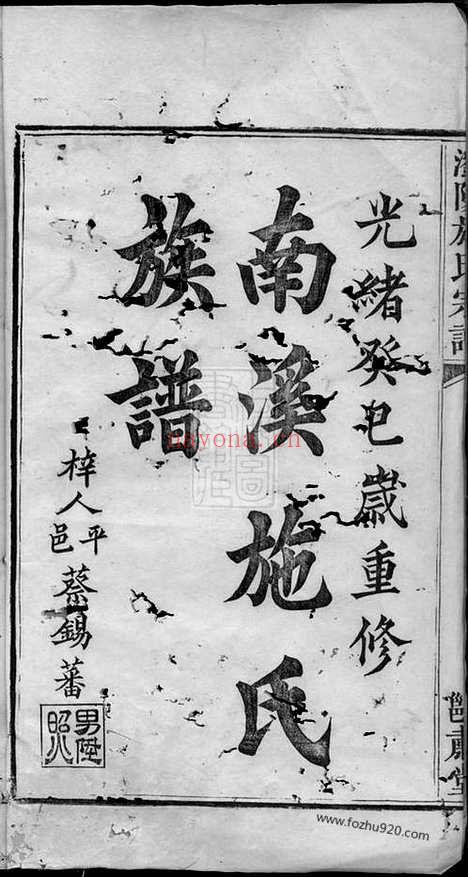 光緒癸巳歲重修
南溪施氏
族譜
梓人平邑蔡錫蕃
施氏宗譜
肅堂
nayona.cn
www.fozhu920.com